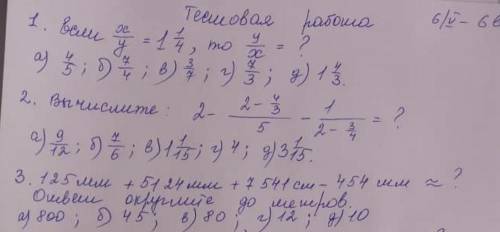 Тестовая работа 6/II - 6е
1. Если x/y = 1 1/4, то y/x = ?
а) 4/5; б) 7/4; в) 3/7; г) 7/3; д) 1 4/3.
2. Вычислите: 2 - (2 - 4/3)/5 - 1/(2 - 3/4) = ?
а) 9/12; б) 7/6; в) 1 1/15; г) 4; д) 3 1/15.
3. 125 мм + 5124 мм + 7541 см - 454 мм ≈ ?
Ответ округлите до метров.
а) 800; б) 45; в) 80; г) 12; д) 10